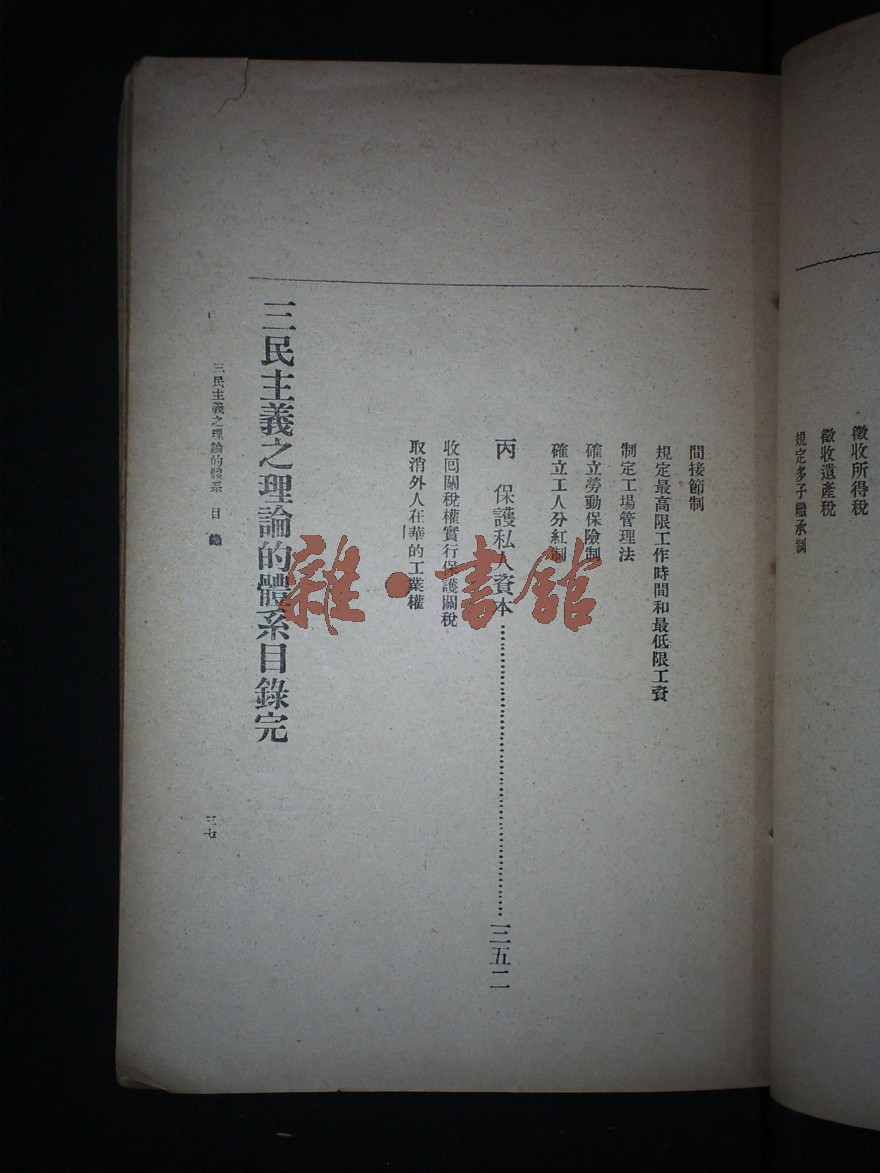 徵收所得稅
徵收遺產稅
規定多子繼承制
間接節制
規定最高限工作時間和最低限工資
制定工場管理法
確立勞動保險制
確立工人分紅制
丙 保護私人資本……三五二
收回關稅權實行保護關稅
取消外人在華的工業權
三民主義之理論的體系目錄完
三民主義之理論的體系 目錄
三七
雜·書館